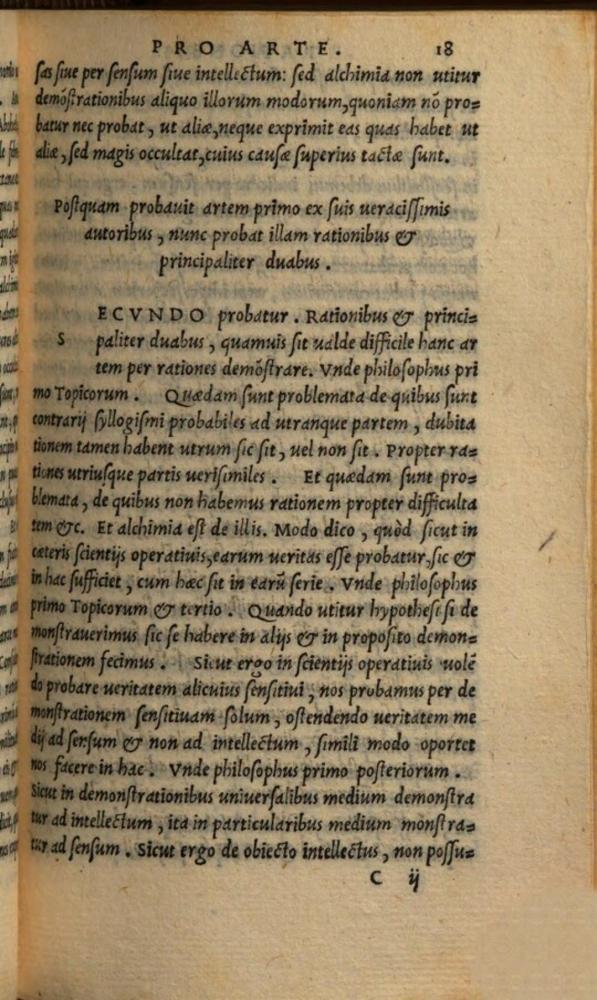 PRO ARTE. 18
sas siue per sensum siue intellectum: sed alchimia non utitur
demõstrationibus aliquo illorum modorum, quoniam nõ pro=
batur nec probat, ut aliæ, neque exprimit eas quas habet ut
aliæ, sed magis occultat, cuius causæ superius tactæ sunt.
Postquam probauit artem primo ex suis ueracissimis
autoribus, nunc probat illam rationibus &
principaliter duabus.
ECVNDO probatur. Rationibus & princi=
S paliter duabus, quamuis sit ualde difficile hanc ar
tem per rationes demõstrare. Vnde philosophus pri
mo Topicorum. Quædam sunt problemata de quibus sunt
contrarij syllogismi probabiles ad utranque partem, dubita
tionem tamen habent utrum sic sit, uel non sit. Propter ra=
tiones utriusque partis uerisimiles. Et quædam sunt pro=
blemata, de quibus non habemus rationem propter difficulta
tem &c. Et alchimia est de illis. Modo dico, quòd sicut in
cæteris scientijs operatiuis, earum ueritas esse probatur, sic &
in hac sufficiet, cum hæc sit in earũ serie. Vnde philosophus
primo Topicorum & tertio. Quando utitur hypothesi si de
monstrauerimus sic se habere in alijs & in proposito demon=
strationem fecimus. Sicut ergo in scientijs operatiuis uolẽ
do probare ueritatem alicuius sensitiui, nos probamus per de
monstrationem sensitiuam solum, ostendendo ueritatem me
dij ad sensum & non ad intellectum, simili modo oportet
nos facere in hac. Vnde philosophus primo posteriorum.
Sicut in demonstrationibus uniuersalibus medium demonstra
tur ad intellectum, ita in particularibus medium monstra=
tur ad sensum. Sicut ergo de obiecto intellectus, non possu=
C ij